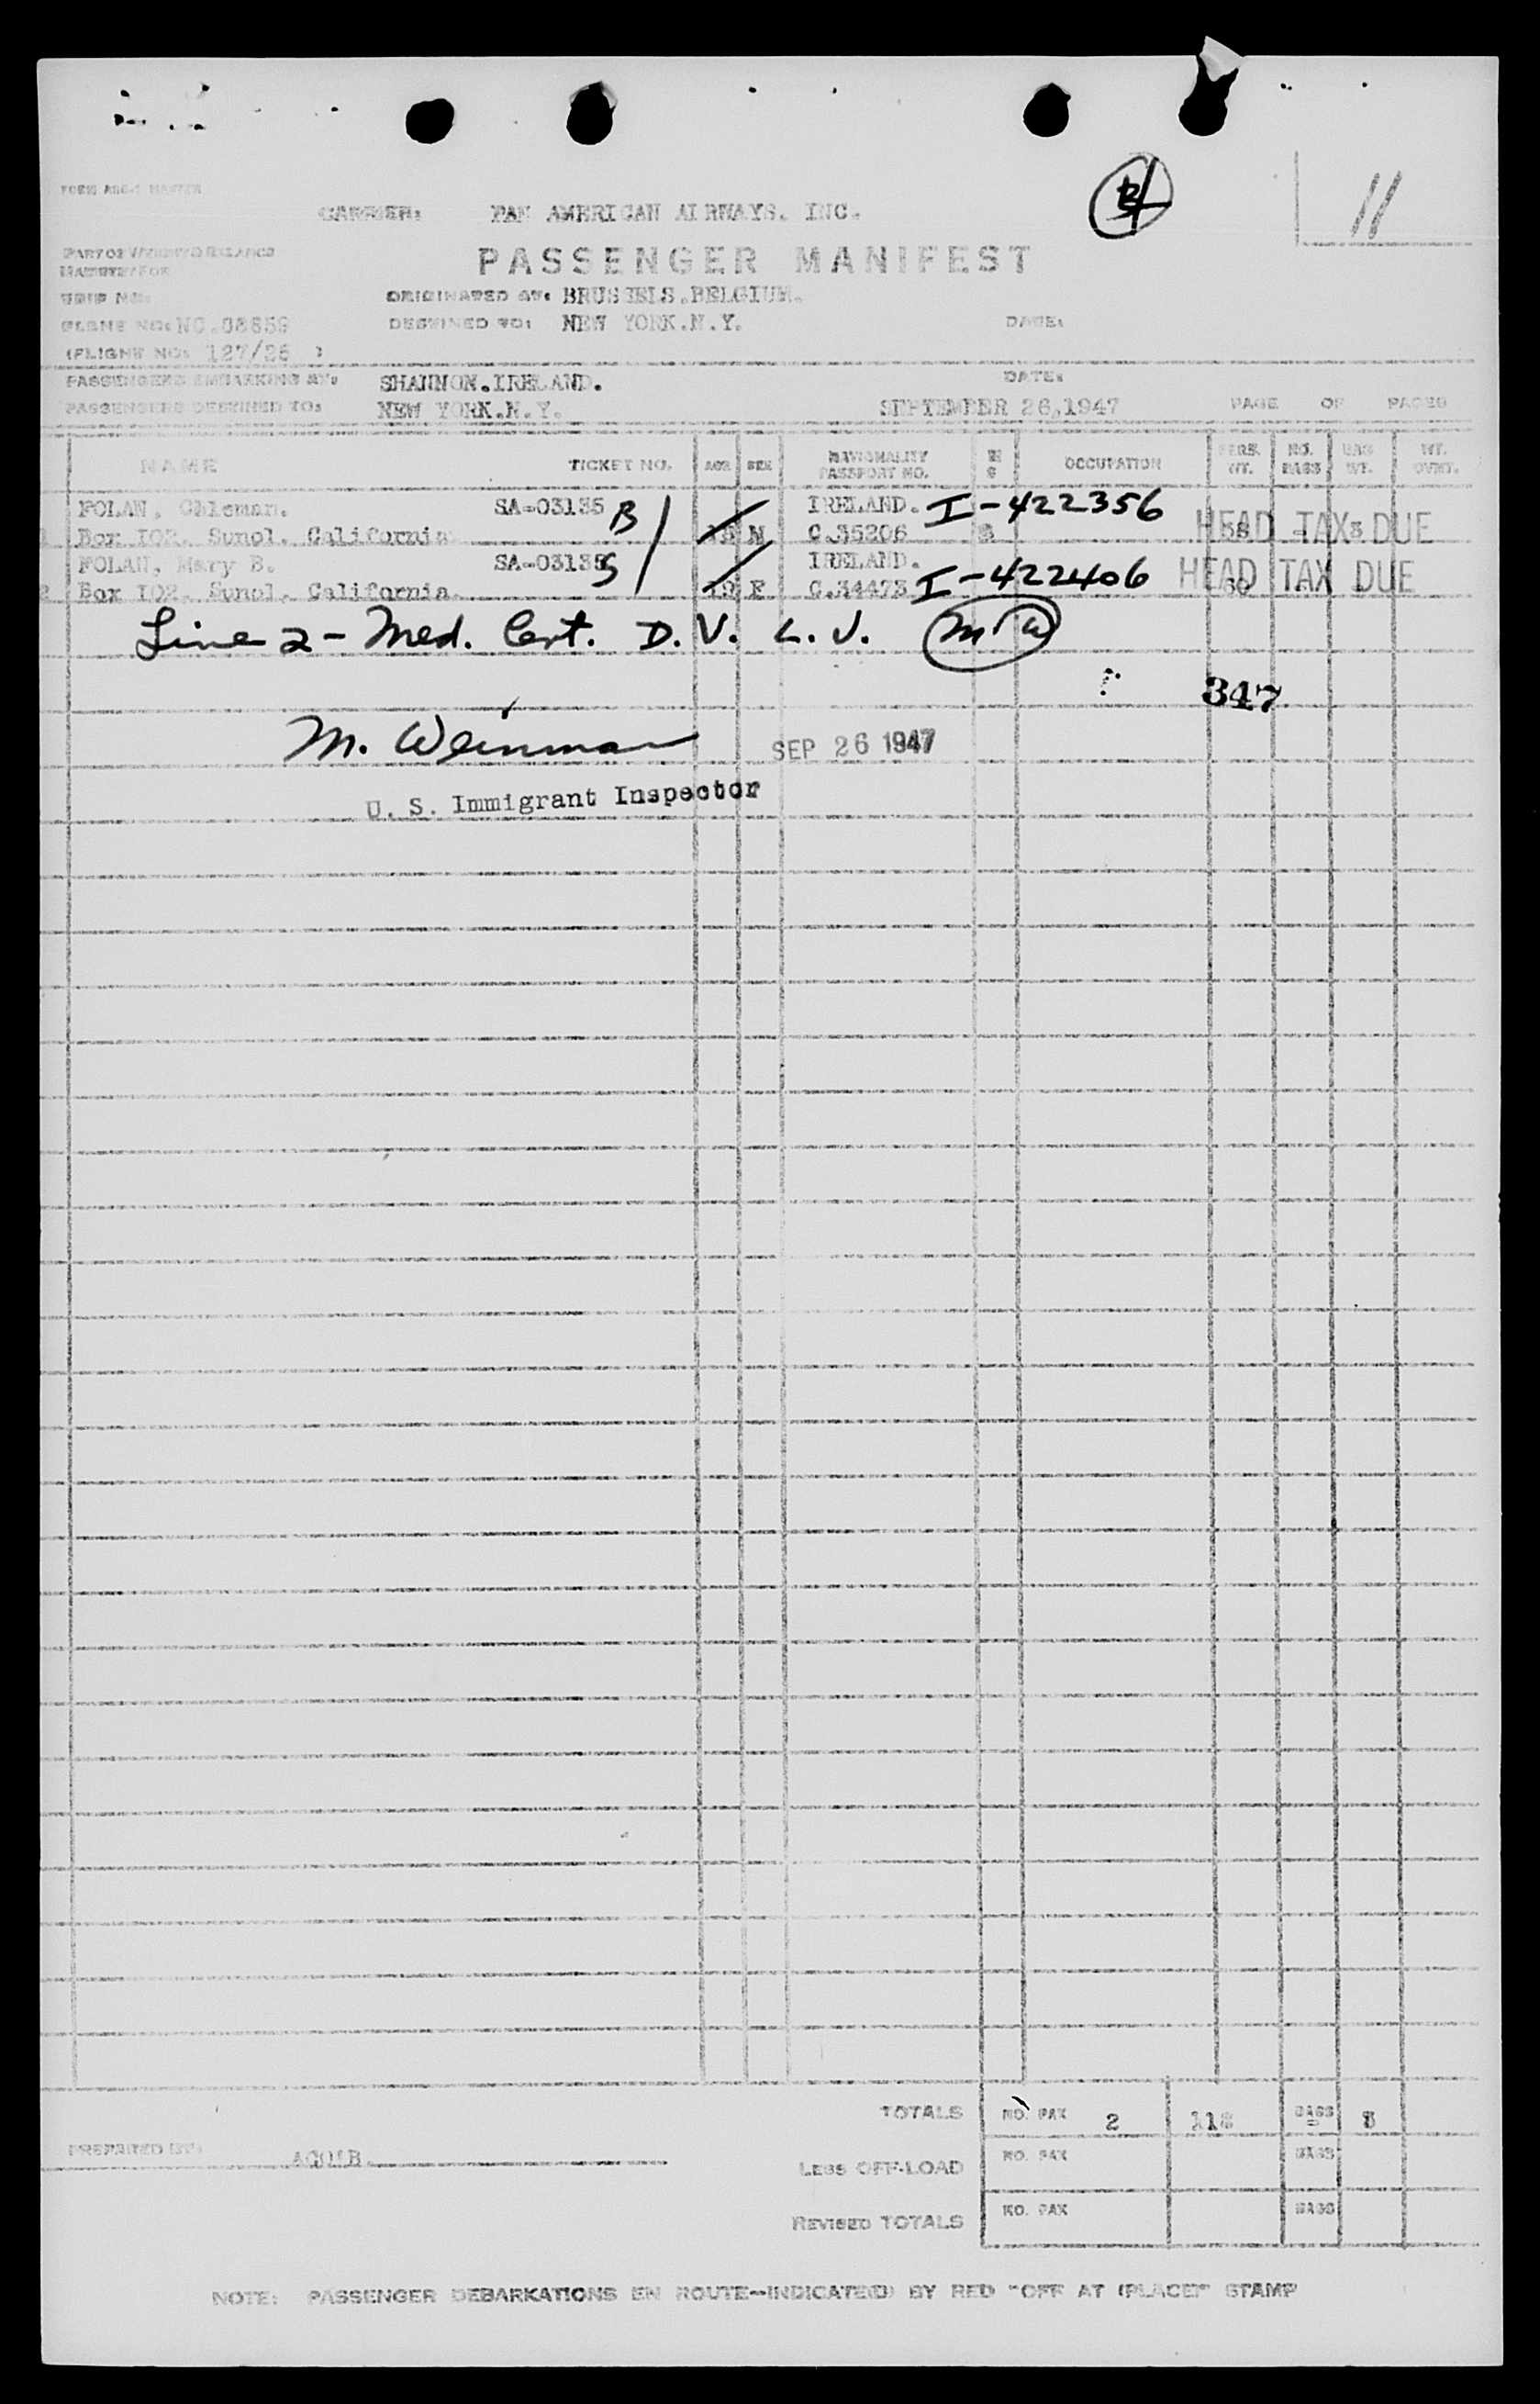 11
CARRIER: PAN AMERICAN AIRWAYS. INC.
PASSENGER MANIFEST
TRIP NO:
ORIGINATED AT: BRUSSELS.BELGIUM.
PLANE NO: NC.88859
DESTINED TO: NEW YORK.N.Y.
DATE:
(FLIGHT NO: 127/26 )
PASSENGERS EMBARKING AT: SHANNON.IRELAND.
DATE:
PASSENGERS DESTINED TO: NEW YORK.N.Y.
SEPTEMBER 26,1947
PAGE OF PAGES
NAME TICKET NO. AGE SEX NATIONALITY PASSPORT NO. OCCUPATION PERS. WT. NO. BAGS BAG WT. WT. OVWT.
FOLAN, SA-03135 B IRELAND. I-422356
1 Box 102. Sunol. California M C.35206 58 HEAD TAX DUE
FOLAN, Mary B. SA-03135 S IRELAND. I-422406
2 Box 102. Sunol. California 19 F C.34473 60 HEAD TAX DUE
Line 2 - Med. Cert. D. V. L. V.
347
M. Weinman SEP 26 1947
U. S. Immigrant Inspector
TOTALS NO. PAX 2 118 BAGS
PREPARED BY:
LESS OFF-LOAD NO. PAX BAGS
REVISED TOTALS NO. PAX BAGS
NOTE: PASSENGER DEBARKATIONS EN ROUTE-INDICATE(D) BY RED "OFF AT (PLACE)" STAMP